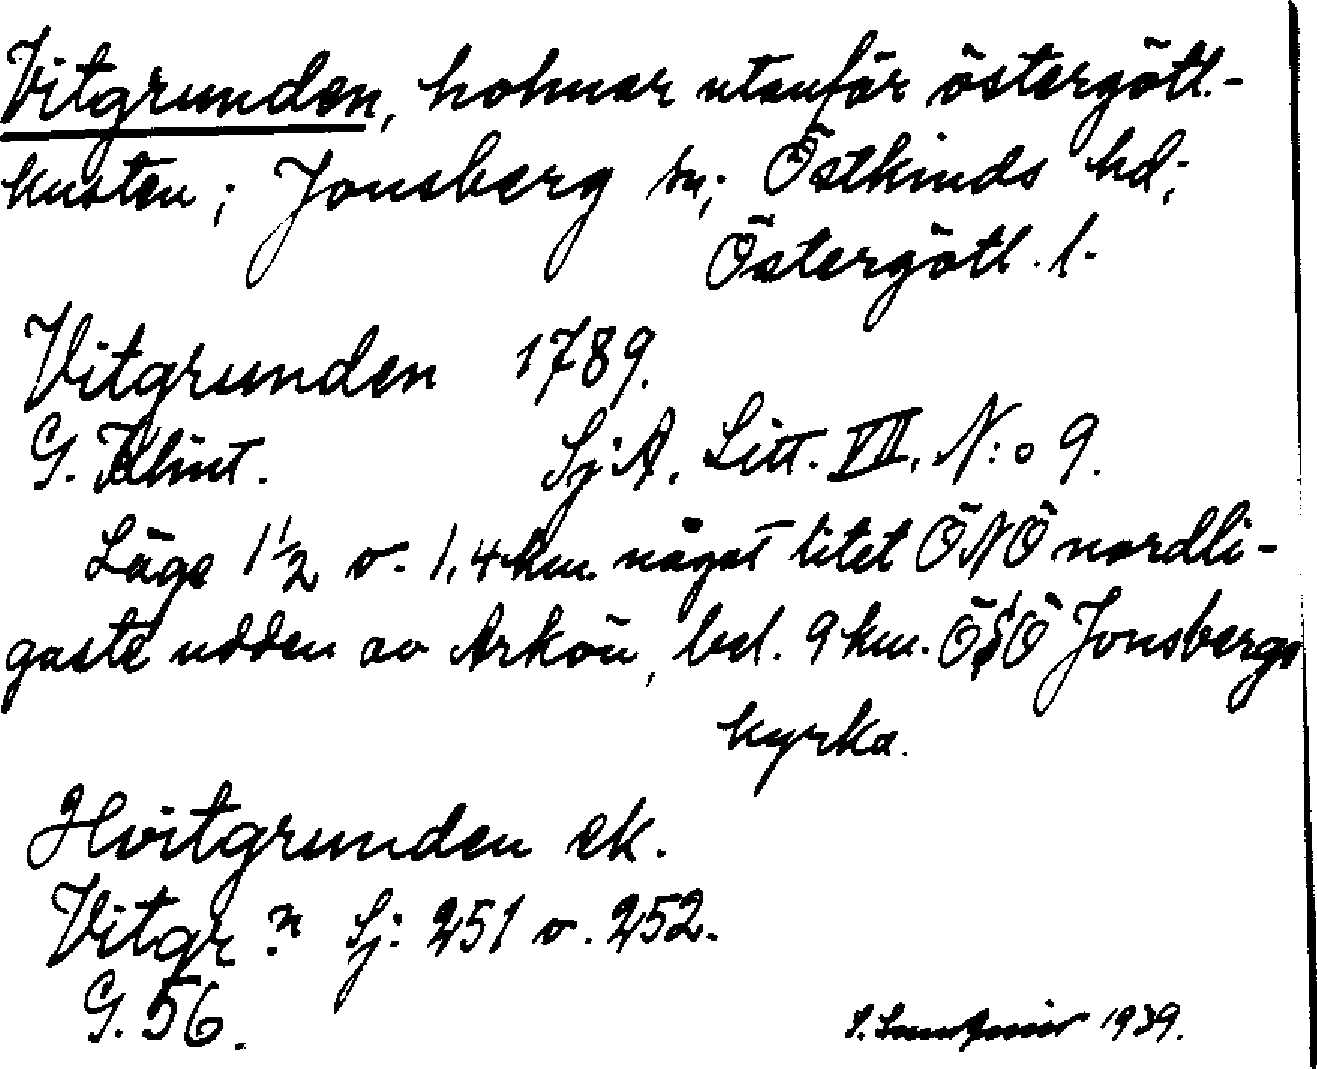 Vitgrunden, holmar utanför östergötl.-
kusten; Jonsberg sn; Östkinds hd;
Östergötl. l.
Vitgrunden 1789.
G. Klint. Sj.A. Litt. VII. N:o 9.
Läge 1½ o. 1,4 km. något litet ÖNÖ nordli-
gaste udden av Arkön, bel. 9 km. ÖSÖ Jonsbergs
kyrka.
Hvitgrunden ek.
Vitgr:n Sj: 251 o. 252.
G. 56.
1939.